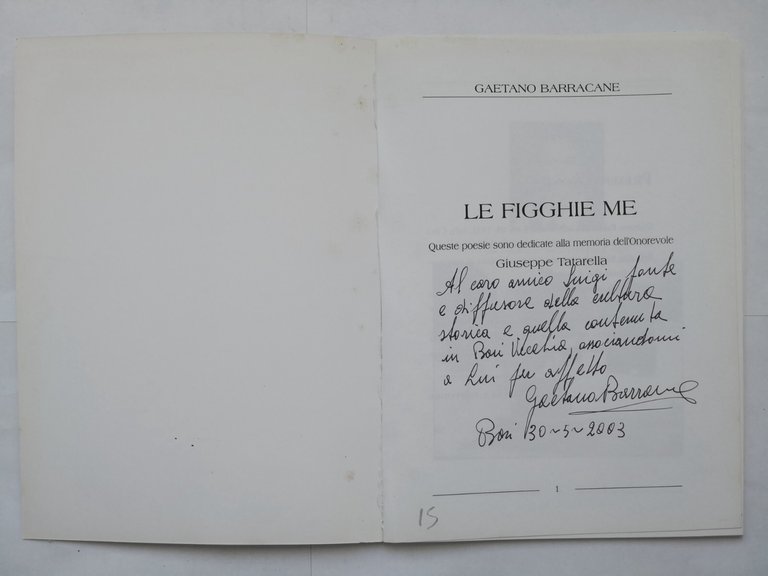 GAETANO BARRACANE
LE FIGGHIE ME
Queste poesie sono dedicate alla memoria dell'Onorevole
Giuseppe Tatarella
Al caro amico Luigi fonte
e diffusore della cultura
storica e quella contenuta
in Bari Vecchia, associandomi
a Lui per affetto
Gaetano Barracane
Bari 30-5-2003
1
15